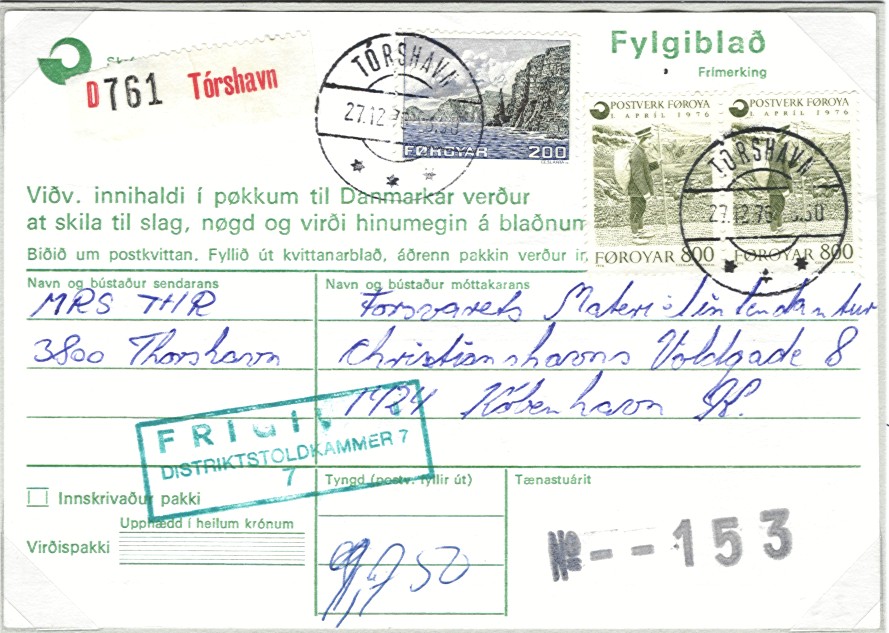 Fylgiblað
Frimerking
D761 Tórshavn
TÓRSHAVN
27.12.79
FØROYAR 200
POSTVERK FØROYA
1. APRIL 1976
FØROYAR 800
POSTVERK FØROYA
1. APRIL 1976
FØROYAR 800
TÓRSHAVN
27.12.79
Viðv. innihaldi í pøkkum til Danmarkar verður
at skila til slag, nøgd og virði hinumegin á blaðnum
Biðið um postkvittan. Fyllið út kvittanarblað, áðrenn pakkin verður
Navn og bústaður sendarans
MRS THR
3800 Thorshavn
Navn og bústaður móttakarans
Forsvarets Materielintendantur
Christianshavns Voldgade 8
1424 København K.
FRIGIV
DISTRIKTSTOLDKAMMER 7
7
Innskrivaður pakki
Upphædd í heilum krónum
Virðispakki
Tyngd (postv. fyllir út)
Tænastuárit
№--153